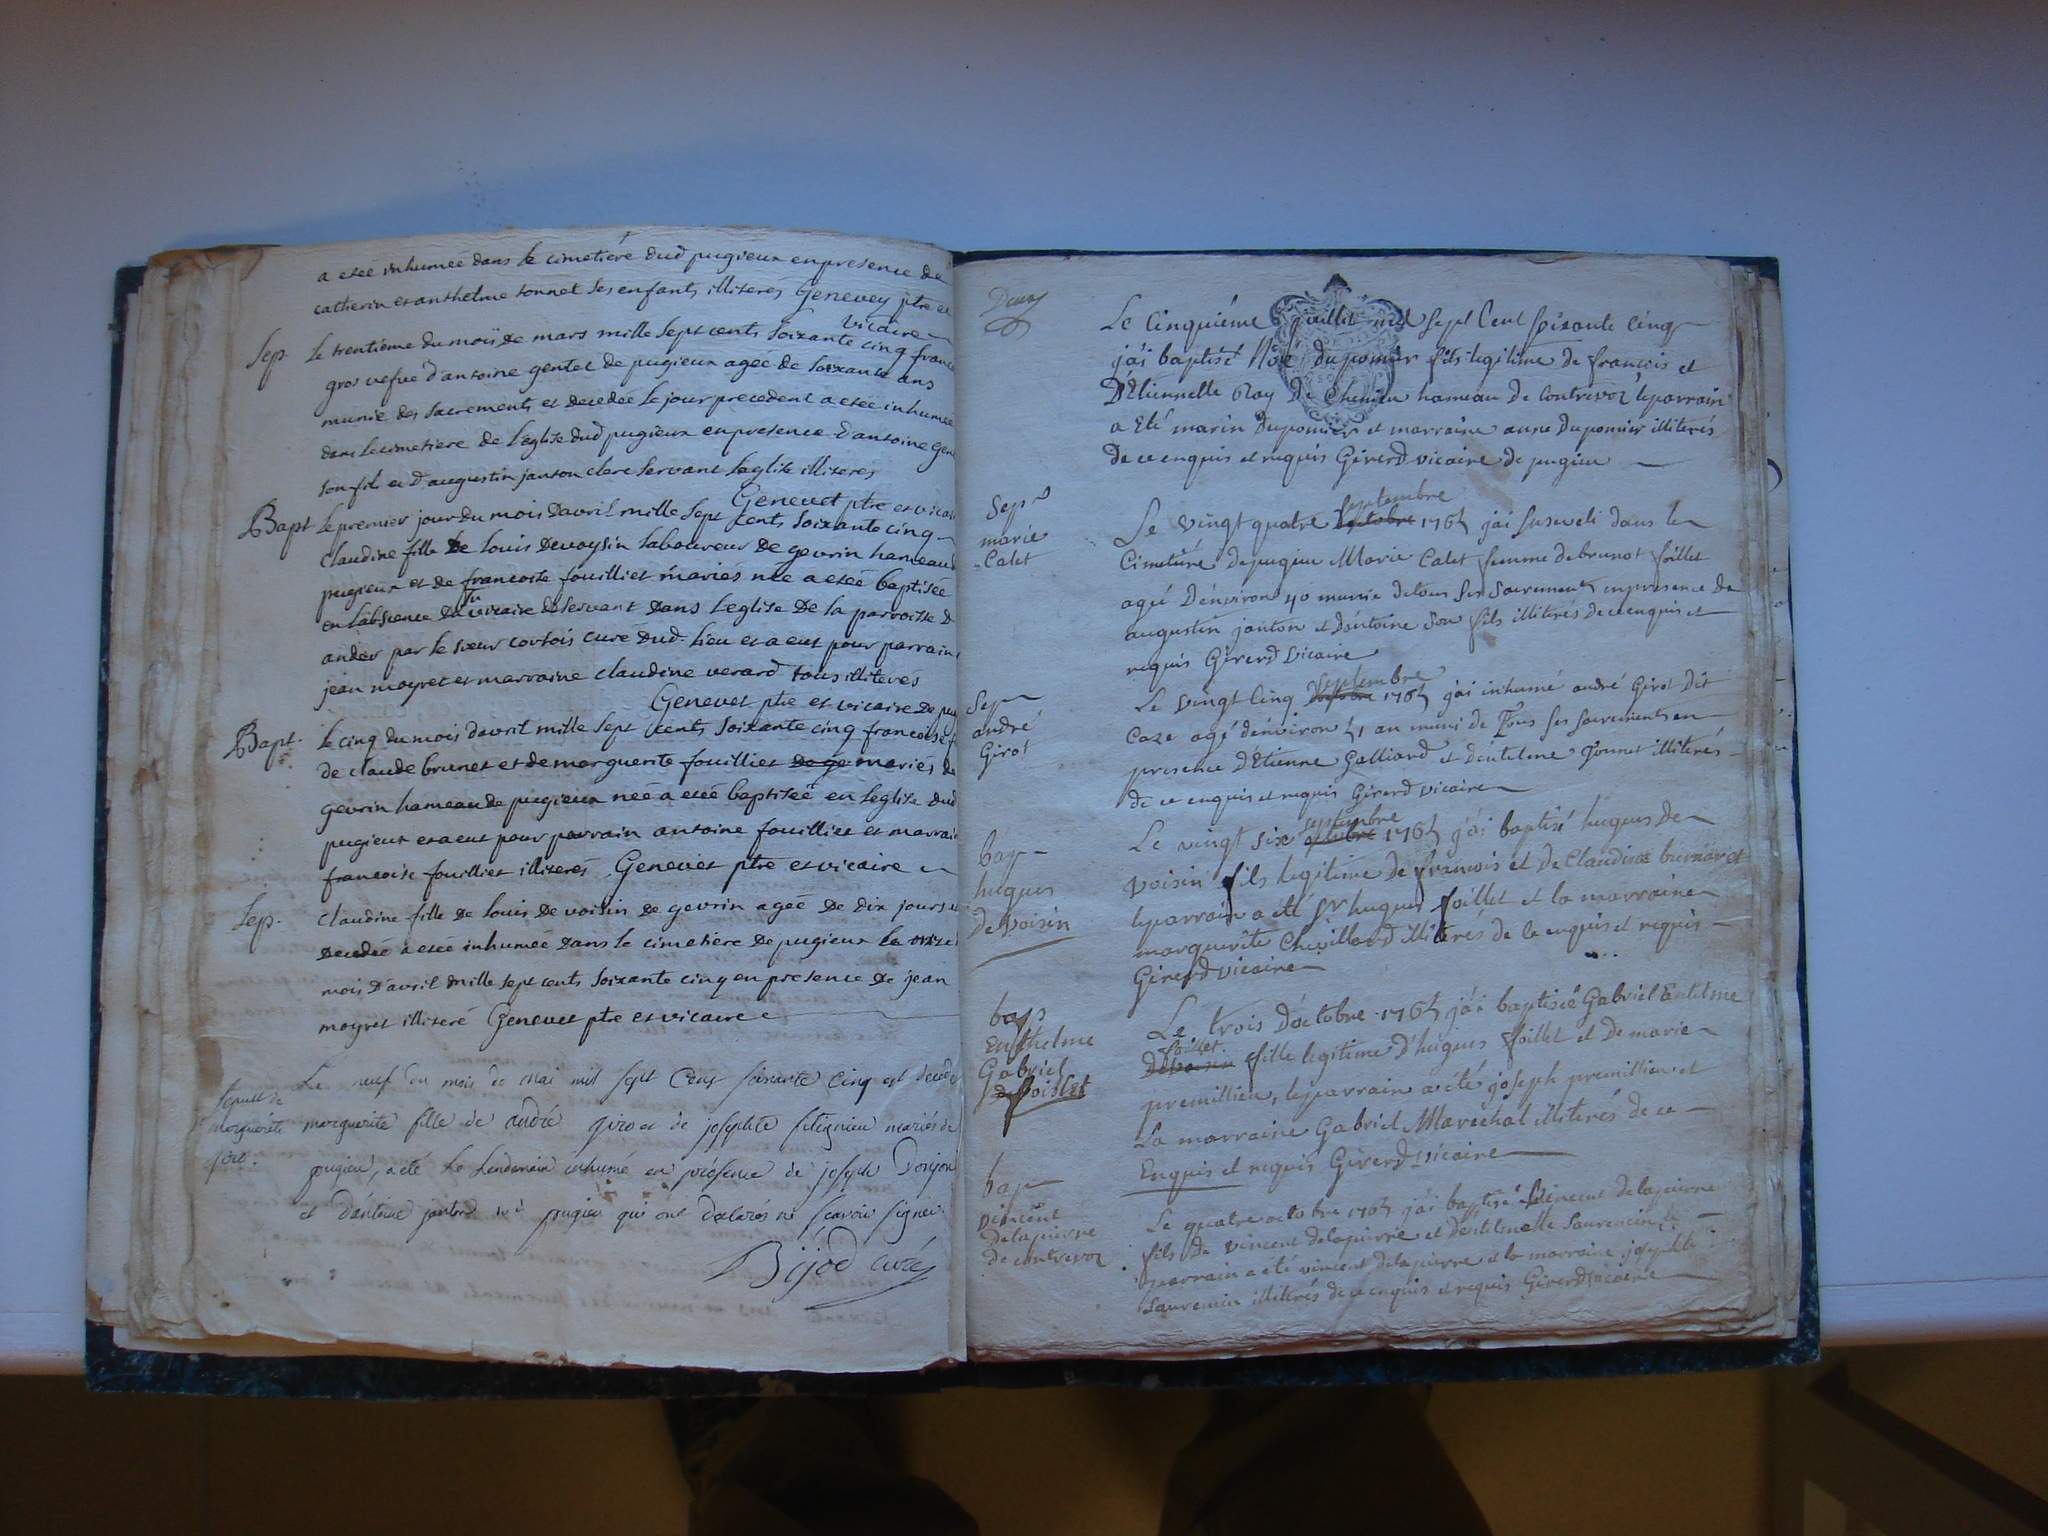 a eteé inhumeé dans le cimetiére dud pugieux en presence de
catherin et anthelme tonnet ses enfants illiteres Genevey ptre et
vicaire
Sep. le trentiéme du mois de mars mille sept cents soixante cinq
gros vefue d'antoine gentet de pugieux ageé de soixante ans
munie des sacrements et decedeé le jour precedent a eteé inhumeé
dans le cimetiere de l'eglise dud pugieux en presence d'antoine
son fils et d'augustin janton clerc servant l'eglise illiteres
Genevet ptre et
Bapt le premier jour du mois d'avril mille sept cents soixante cinq
claudine fille de louis devoysin laboureur de gevrin hameau
pugieux et de francoise fouilliet mariés neé a eteé baptiseé
en l'absence du vicaire deservant dans l'eglise de la parroisse
ander par le sieur cortois curé dud. lieu et a eut pour parrain
jean moyret et marraine claudine verard tous illiterés
Genevet ptre et vicaire de
Bapt. le cinq du mois davril mille sept cents soixante cinq francoise
de claude brunet et de marguerite fouilliet de ge mariés
gevrin hameau de pugieux neé a eteé baptiseé en l'eglise dud
pugieux et a eut pour parrain antoine fouilliet et
francoise fouilliet illiterés Genevet ptre et vicaire
Sep. Claudine fille de louis de voisin de gevrin ageé de dix jours
decedeé a eteé inhumeé dans le cimetiere de pugieux le
mois d'avril mille sept cents soixante cinq en presence de jean
moyret illiteré Genevet ptre et vicaire
Le neuf du mois de mai mil sept Cent soixante Cinq est
Sepult de
marguérite marguerite fille de andré giro et de josephte mariés de
giro. pugieu, a été le lendemain inhumé en présence de joseph
et d'antoine janton de pugieu qui ont déclarés ne scavoir signer.
Bijod curé
Le Cinquiéme juillet mil sept Cent soixante Cinq
j'ai baptisé duponier fils legitime de francois et
D'Etiennette Ray de Chemieu hameau de Contrevoz leparrain
a Eté marin Duponier et marraine anne Duponier illiterés
De ce enquis et requis Girerd vicaire de pugieu
Sep
marie
Calet
septembre
Le vingt quatre octobre 1765 j'ai Enseveli dans le
Cimetiére de pugieu Marie Calet femme de brunot foillet
agée D'environ 40 munie de tous ses sacrements en presence de
augustin janton et d'antoine son fils illiterés de ce enquis et
requis Girerd vicaire
Sep
andré
Girot
septembre
Le vingt Cinq octobre 1765 j'ai inhumé andré Girot Dit
Caze agé d'environ 51 an muni de Tous ses sacrements en
presence d'Etienne Galliard et d'entelme Tonnet illiterés
de ce enquis et requis Girerd vicaire
bap
hugues
De Voisin
septembre
Le vingt six octobre 1765 j'ai baptisé hugues de
Voisin fils legitime de francois et de Claudine
leparrain a été sr hugues foillet et la marraine
marguerite Chevillard illiterés de ce enquis et requis
Girerd vicaire
bap
Enthelme
Gabriel
foillet
Le trois d'octobre 1765 j'ai baptisé Gabriel Entelme
foillet
Devoisin fille legitime d'hugues foillet et de marie
premillieu, leparrain a été joseph premillieu et
La marraine Gabriel Maréchal illiterés de ce
Enquis et requis Girerd vicaire
bap
vincent
delapierre
de contrevoz
Le quatre octobre 1765 j'ai baptisé vincent delapierre
fils de vincent delapierre et d'entelmette Laurencin le
parrain a été vincent delapierre et la marraine josephte
Laurencin illiterés de ce enquis et requis Girerd vicaire